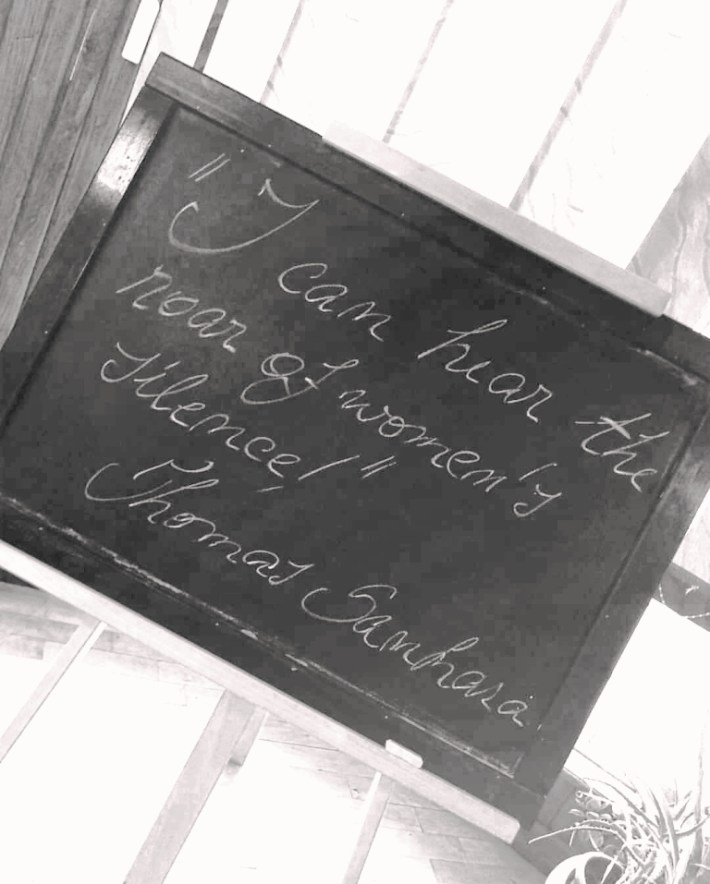 "I can hear the
roar of women's
silence!"
Thomas Sankara.